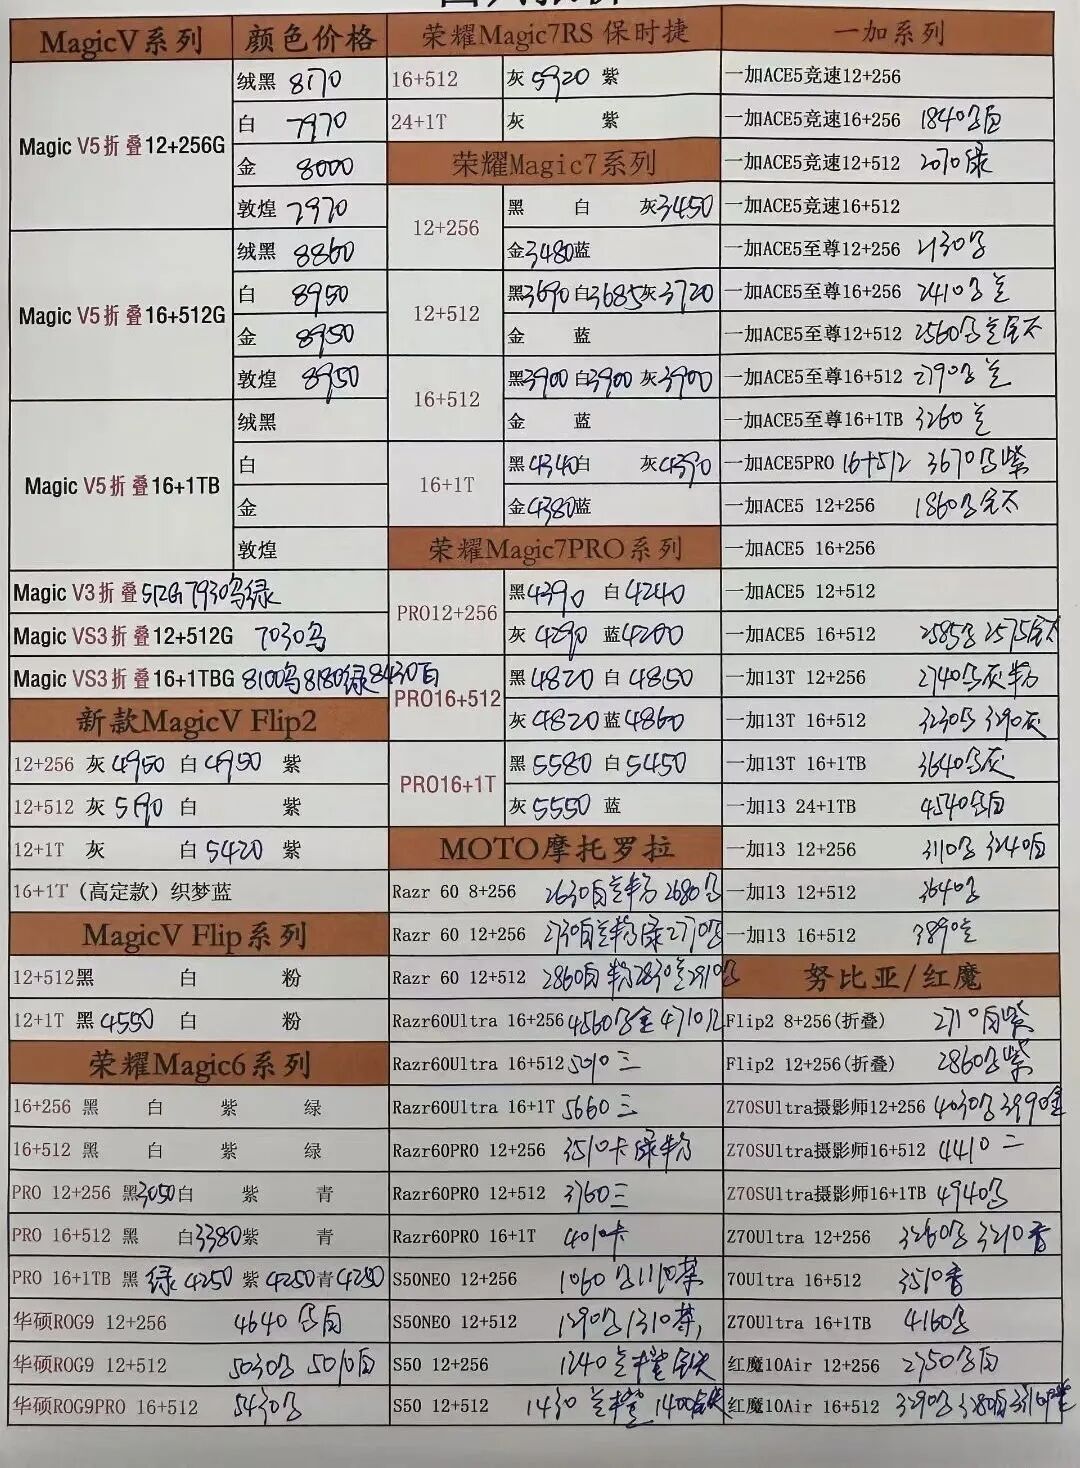 MagicV系列 颜色价格
Magic V5折叠12+256G
绒黑 8170
白 7970
金 8000
敦煌 7970
Magic V5折叠16+512G
绒黑 8860
白 8950
金 8950
敦煌 8950
Magic V5折叠16+1TB
绒黑
白
金
敦煌
Magic V3折叠512G 7930乌绿
Magic VS3折叠12+512G 7030乌
Magic VS3折叠16+1TBG 8100乌8180绿8430白
新款MagicV Flip2
12+256 灰4950 白4950 紫
12+512 灰5190 白 紫
12+1T 灰 白5420 紫
16+1T（高定款）织梦蓝
MagicV Flip系列
12+512黑 白 粉
12+1T 黑4550 白 粉
荣耀Magic6系列
16+256 黑 白 紫 绿
16+512 黑 白 紫 绿
PRO 12+256 黑3050白 紫 青
PRO 16+512 黑 白3380紫 青
PRO 16+1TB 黑 绿4250 紫4250青4250
华硕ROG9 12+256 4640 白
华硕ROG9 12+512 5030 5010白
华硕ROG9PRO 16+512 5430
荣耀Magic7RS 保时捷
16+512 灰5920 紫
24+1T 灰 紫
荣耀Magic7系列
12+256
黑 白 灰3450
金3480蓝
12+512
黑3690白3685灰3720
金 蓝
16+512
黑3900白3900灰3900
金 蓝
16+1T
黑4340白 灰4390
金4380蓝
荣耀Magic7PRO系列
PRO12+256
黑4390 白4240
灰4290 蓝4200
PRO16+512
黑4820 白4850
灰4820蓝4860
PRO16+1T
黑5580 白5450
灰5550 蓝
MOTO摩托罗拉
Razr 60 8+256 2630白兰粉 2680
Razr 60 12+256 2730白兰粉绿2770
Razr 60 12+512 2860白粉2830兰2910
Razr60Ultra 16+256 4560 金 4710
Razr60Ultra 16+512 5010三
Razr60Ultra 16+1T 5660三
Razr60PRO 12+256 3510卡绿粉
Razr60PRO 12+512 3760三
Razr60PRO 16+1T 4010卡
S50NEO 12+256 1060 1110
S50NEO 12+512 1290 1310
S50 12+256 1240兰
S50 12+512 1430兰 1400
一加系列
一加ACE5竞速12+256
一加ACE5竞速16+256 1840 白
一加ACE5竞速12+512 2070绿
一加ACE5竞速16+512
一加ACE5至尊12+256 2130
一加ACE5至尊16+256 2410 兰
一加ACE5至尊12+512 2560 兰
一加ACE5至尊16+512 2790 兰
一加ACE5至尊16+1TB 3260兰
一加ACE5PRO 16+512 3670 紫
一加ACE5 12+256 1860
一加ACE5 16+256
一加ACE5 12+512
一加ACE5 16+512 2585 2575
一加13T 12+256 2740 灰粉
一加13T 16+512 3230 3290灰
一加13T 16+1TB 3640 灰
一加13 24+1TB 4540 白
一加13 12+256 3110 3240白
一加13 12+512 3640
一加13 16+512 3890兰
努比亚/红魔
Flip2 8+256(折叠) 2710白紫
Flip2 12+256(折叠) 2860 紫
Z70SUltra摄影师12+256 4030 3990金
Z70SUltra摄影师16+512 4410二
Z70SUltra摄影师16+1TB 4940
Z70Ultra 12+256 3260 3210香
70Ultra 16+512 3510香
Z70Ultra 16+1TB 4160
红魔10Air 12+256 2750 白
红魔10Air 16+512 3290 3280白